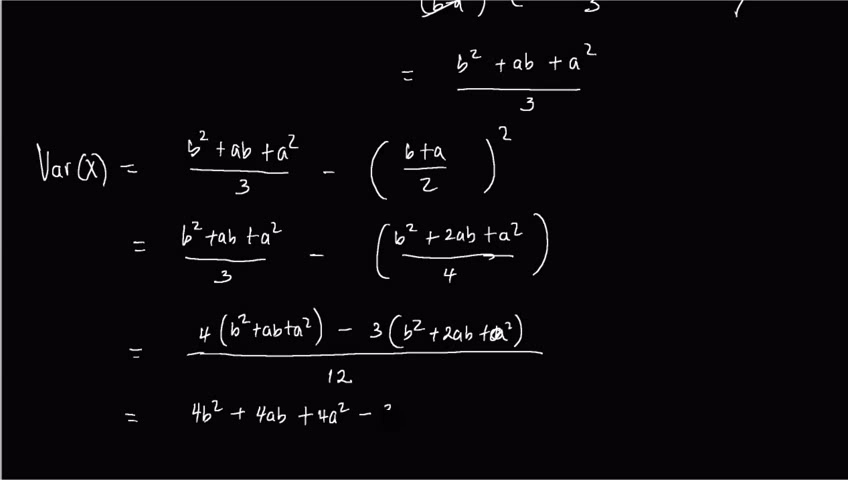 = b² + ab + a² / 3
Var(X) = b² + ab + a² / 3 − ( b + a / 2 )²
= b² + ab + a² / 3 − ( b² + 2ab + a² / 4 )
= 4 ( b² + ab + a² ) − 3 ( b² + 2ab + a² ) / 12
= 4b² + 4ab + 4a² −